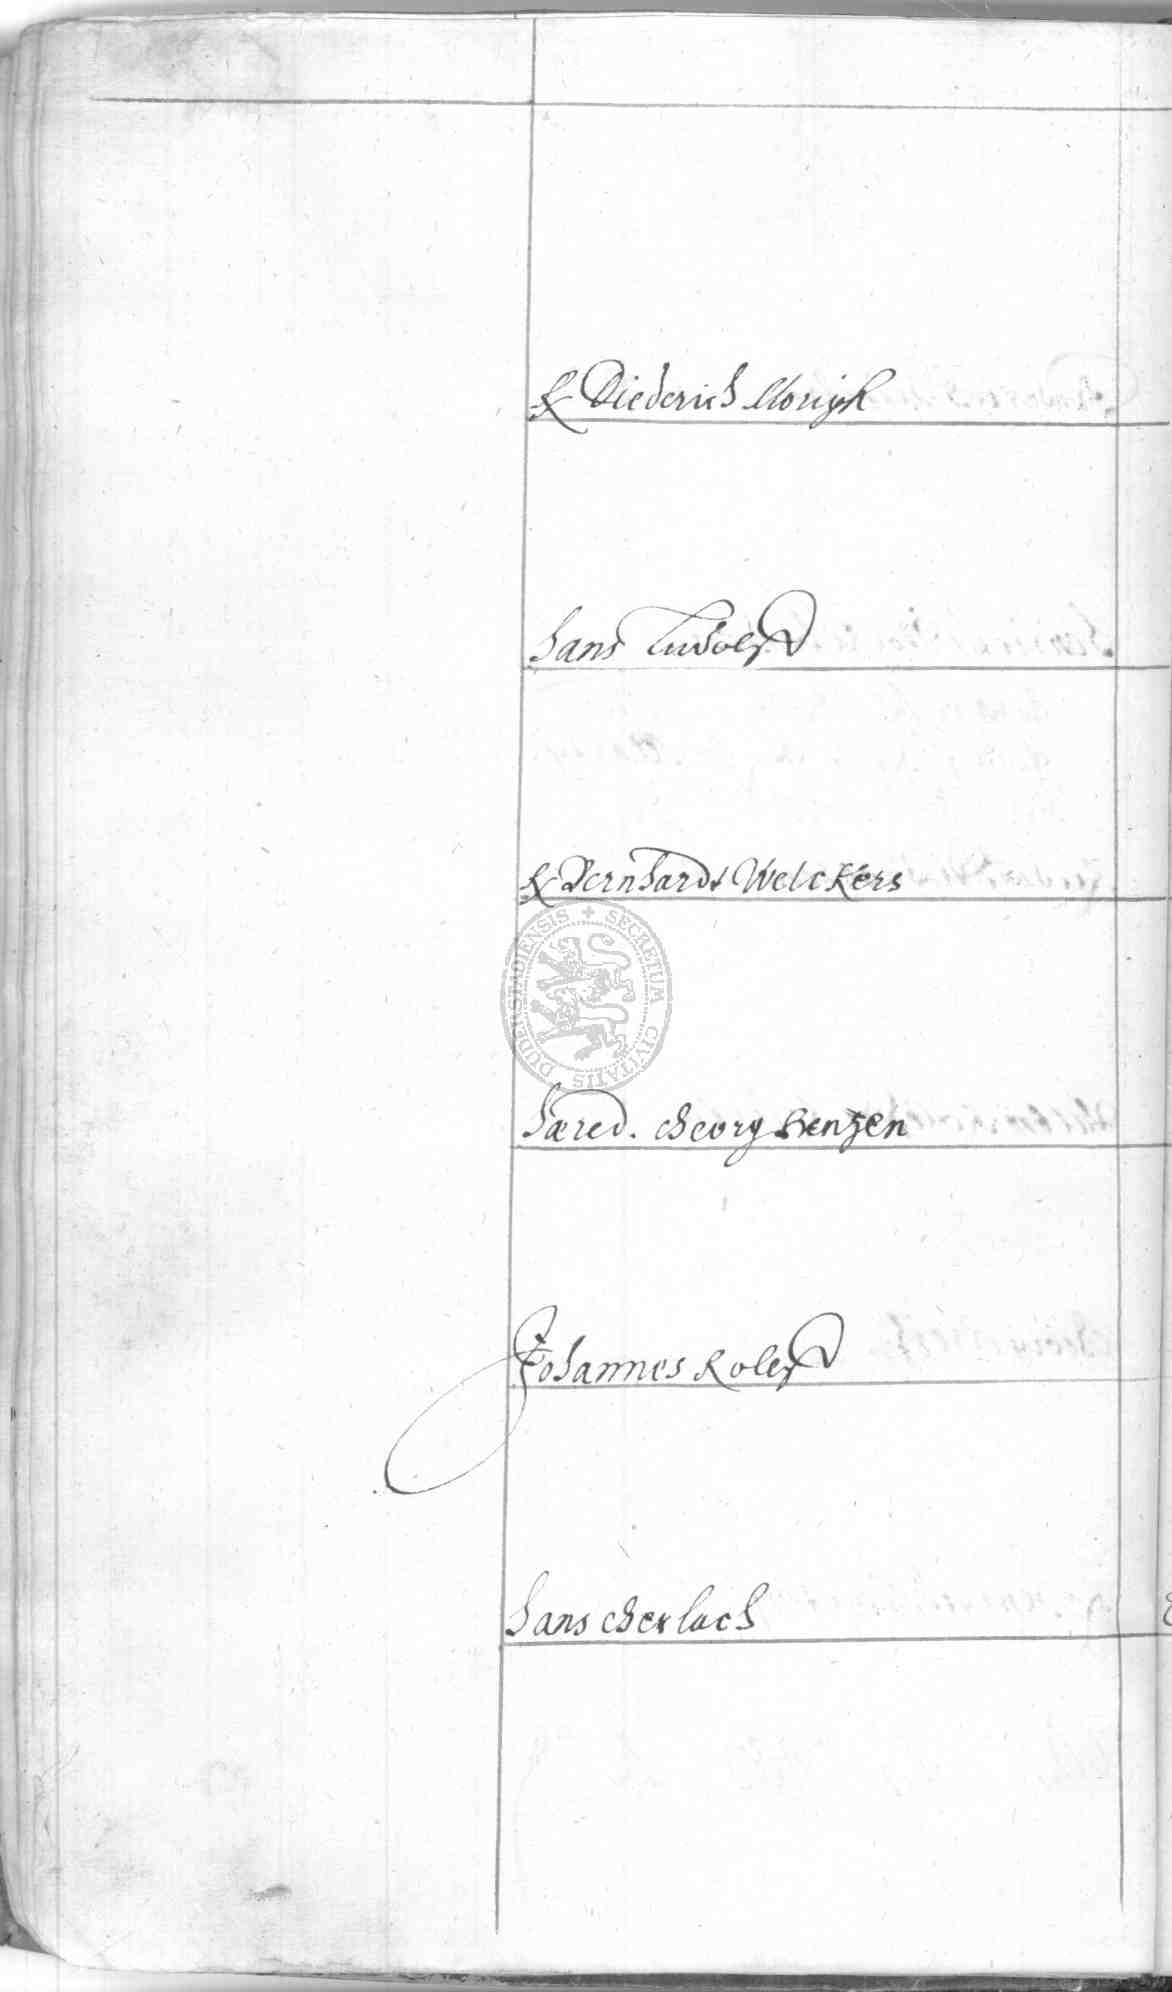 Diederich
Hans Ludolff
Bernhardt Welckers
SECRETUM CIVITATIS DUDERSTADIENSIS
Hæred. Georg Hentzen
Johannes Rolff
Hans Gerlach